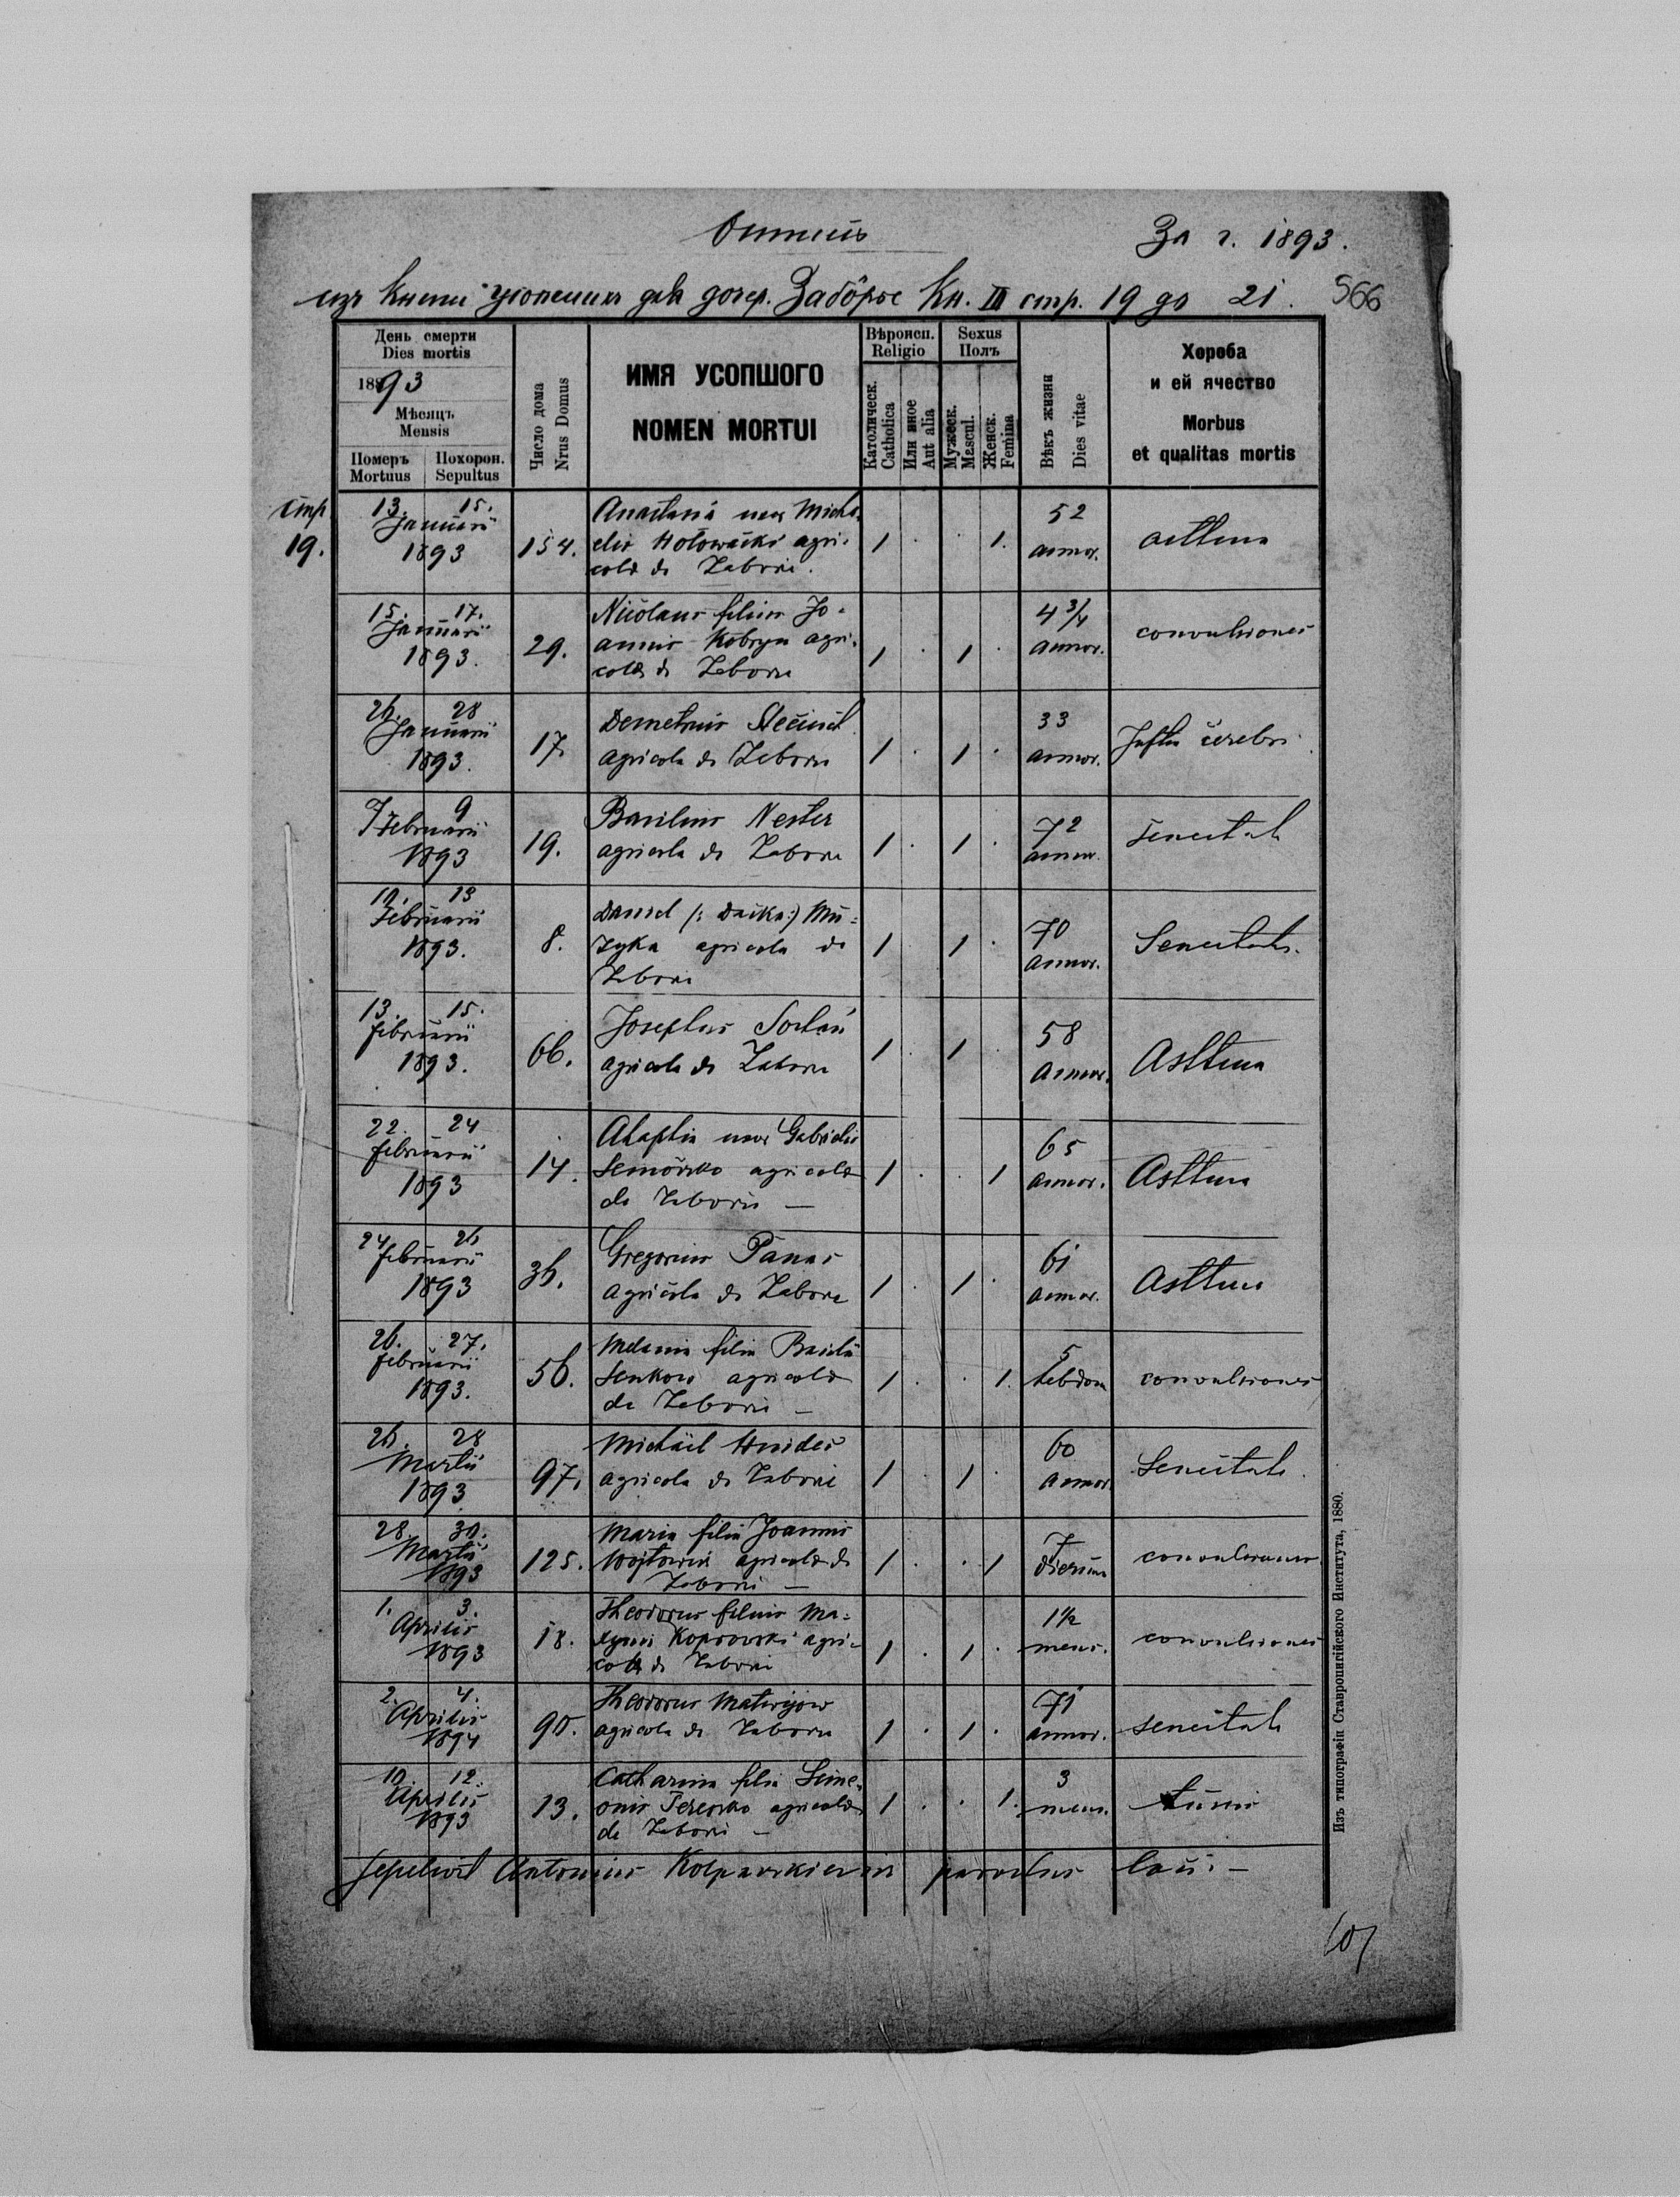 За г. 1893.
изъ Книги усопшихъ для дочер. Заборье Кн. III стр. 19 до 21. 566
День смерти
Dies mortis
1893
Мѣсяцъ
Mensis
Померъ Похорон.
Mortuus Sepultus
Число дома
Nrus Domus
ИМЯ УСОПШОГО
NOMEN MORTUI
Вѣроисп.
Religio
Католическ.
Catholica
Или иное
Aut alia
Sexus
Полъ
Мужеск.
Mascul.
Женск.
Femina
Вѣкъ жизни
Dies vitae
Хороба
и ей ячество
Morbus
et qualitas mortis
стр
19.
13. 15.
Januarii
1893
154.
Anastasia uxor Micha
elis Hołowacki agri-
colæ de Zaborie.
1 . . 1.
52
annor.
asthma
15. 17.
Januarii
1893.
29.
Nicolaus filius Jo-
annis Kobryn agri-
colæ de Zaborie
1 . 1 .
4 3/4
annor.
convulsiones
26. 28
Januarii
1893.
17.
Demetrius
agricola de Zaborie
1 . 1 .
33
annor.
cerebri
7 9
Februarii
1893
19.
Basilius Nester
agricola de Zaborie
1 . 1 .
72
annor.
senectute
10. 13
Februarii
1893.
8.
Daniel (: Dacka:) Mu=
zyka agricola de
Zaborie
1 1 .
70
annor.
Senectute.
13. 15.
februarii
1893.
66.
Josephus
agricola de Zaborie
1 . 1 .
58
annor.
Asthma
22. 24
februarii
1893
14.
Ahaphia uxor Gabrielis
agricolæ
de Zaborie —
1 . . 1
65
annor.
Asthma
24 26
februarii
1893
36.
Gregorius Panas
agricola de Zaborie
1 . 1 .
61
annor.
Asthma
26. 27.
februarii
1893.
56.
Melania filia Basilii
Senkow agricolæ
de Zaborie —
1 . . 1.
5
hebdom
convulsiones
26. 28
Martii
1893
97.
Michael
agricola de Zaborie
1 . 1 .
60
annor
Senectute.
28. 30.
Martii
1893
125.
Maria filia Joannis
Wojtowicz agricolæ de
Zaborie —
1 . . 1
7
dierum
convulsiones
1. 3.
Aprilis
1893
18.
Theodorus filius Ma=
Koprowski agri-
colæ de Zaborie
1 . 1 .
1 1/2
mens.
convulsiones
2. 4.
Aprilis
1894
90.
Theodorus Matwijow
agricola de Zaborie
1 . 1 .
71
annor.
senectute
10. 12.
Aprilis
1893
13.
Catharina filia Sime-
onis agricolæ
de Zaborie —
1 . . 1.
3
mens.
tussis
Sepelivit Antonius parochus loci. —
Изъ типографіи Ставропигійского Института, 1880.